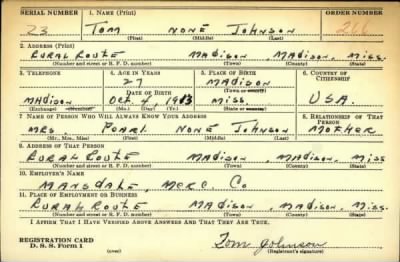 SERIAL NUMBER 1. NAME (Print) ORDER NUMBER
23 TOM NONE JOHNSON
(First) (Middle) (Last)
2. ADDRESS (Print)
RURAL ROUTE MADISON, MADISON, MISS.
(Number and street or R. F. D. number) (Town) (County) (State)
3. TELEPHONE 4. AGE IN YEARS 5. PLACE OF BIRTH 6. COUNTRY OF CITIZENSHIP
27 MADISON
DATE OF BIRTH (Town or county)
MADISON OCT. 4, 1913 MISS. U.S.A.
(Exchange) (Number) (Mo.) (Day) (Yr.) (State or country)
7. NAME OF PERSON WHO WILL ALWAYS KNOW YOUR ADDRESS 8. RELATIONSHIP OF THAT PERSON
MRS. PEARL NONE JOHNSON MOTHER
(Mr., Mrs., Miss) (First) (Middle) (Last)
9. ADDRESS OF THAT PERSON
RURAL ROUTE MADISON, MADISON, MISS
(Number and street or R. F. D. number) (Town) (County) (State)
10. EMPLOYER'S NAME
MANSDALE, MERC. CO
11. PLACE OF EMPLOYMENT OR BUSINESS
RURAL ROUTE MADISON, MADISON, MISS.
(Number and street or R. F. D. number) (Town) (County) (State)
I AFFIRM THAT I HAVE VERIFIED ABOVE ANSWERS AND THAT THEY ARE TRUE.
REGISTRATION CARD Tom Johnson
D. S. S. Form 1 (over) (Registrant's signature)